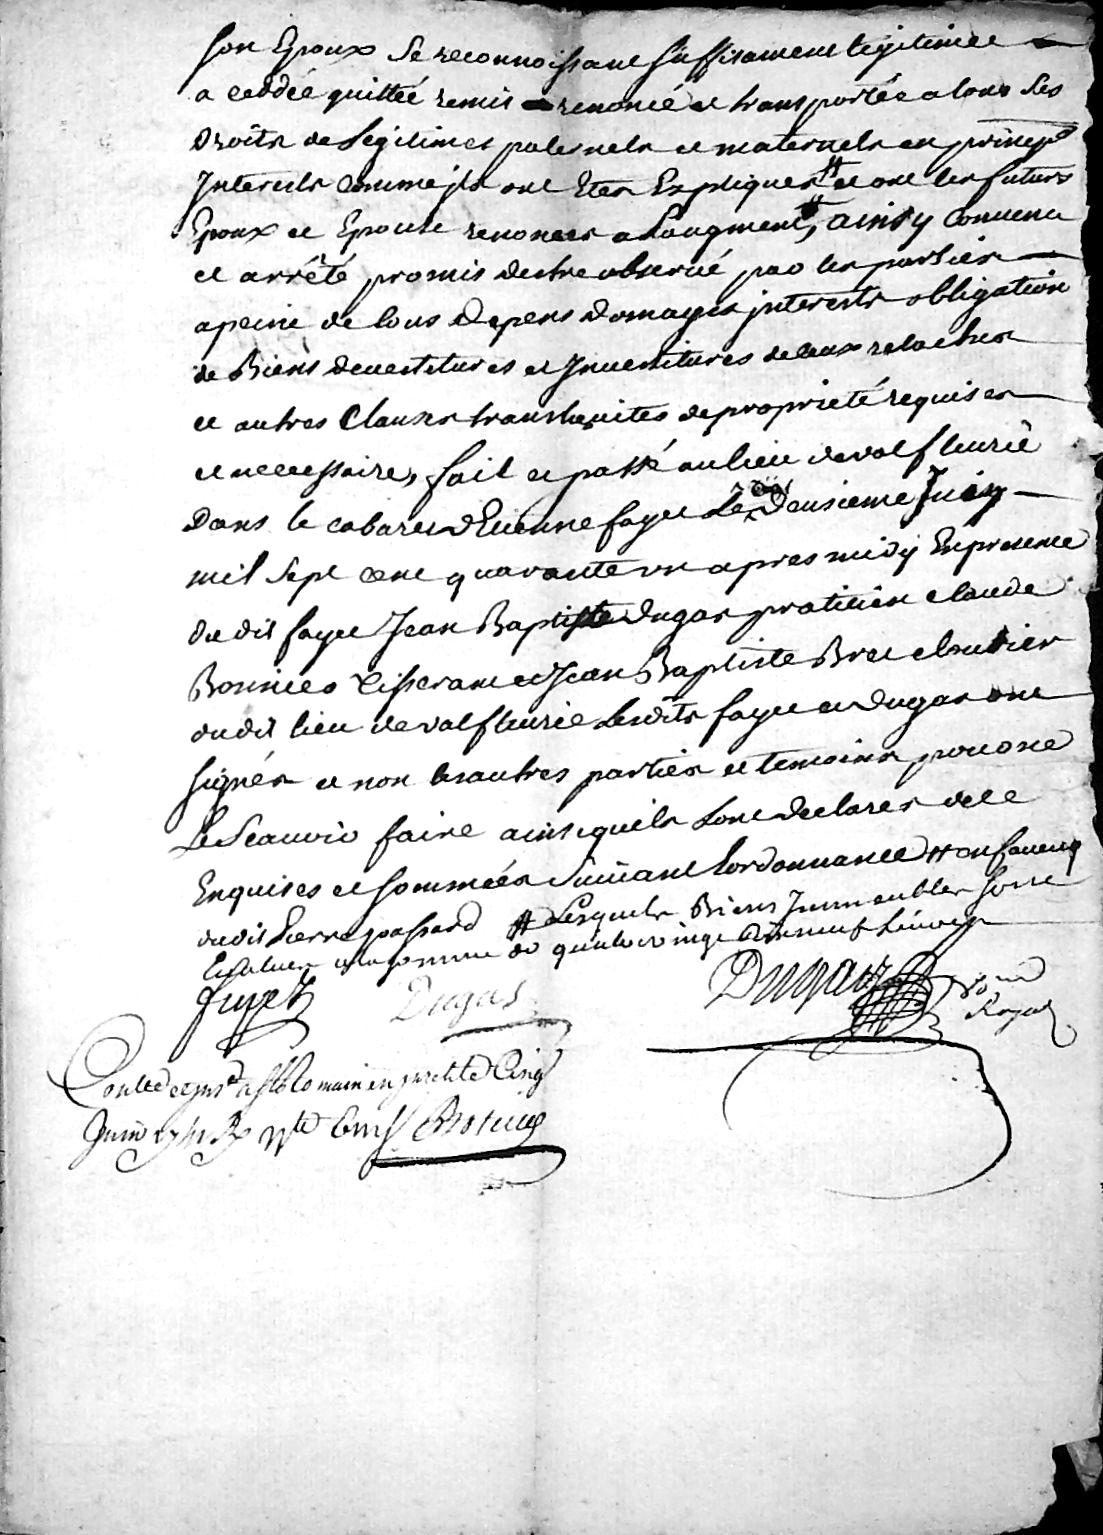 son Epoux se reconnoissant suffisament legitimée
a ceddée quittée remis renoncé et transportée a tous ses
Droits de Legitimes paternels et maternels en princip
Interests comme jls ont Etés Expliqués # et ont les futurs
Epoux et Epouse renoncer a Laugment, ainsy convenu
et arrêté promis destre observé par les parties
a peine de tous Depens Domages jnterests obligation
de Biens devestitures et Jnvestitures
et autres Clauses translatives de propriété requises
et necessaires, fait et passé au lieu de valfleurie
Dans le cabaret d'Etienne fayet Le Deusieme Juin
mil sept cent quarante un apres midy En presence
du dit fayet Jean Baptiste Dugas praticien claude
Bonnier tisserant et Jean Baptiste Bret
du dit lieu de valfleurie Lesdits fayet et Dugas ont
signés et non les autres parties et temoins pour ne
Le Scauvoir faire ainsi quils Lont declarer de ce
Enquises et sommées suivant lordonnance # en faveur
du dit Pierre passard # Lesquels Biens Jmmeubles sont
Evalues a la somme de quatre vingt dix neuf Livres
fayet Dugas Dugas
Royal
Juin 1741